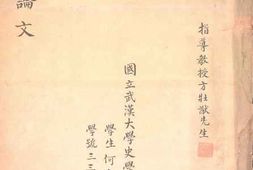 指導教授方壯猷先生
國立武漢大學史學
學生何
學號三三
論文